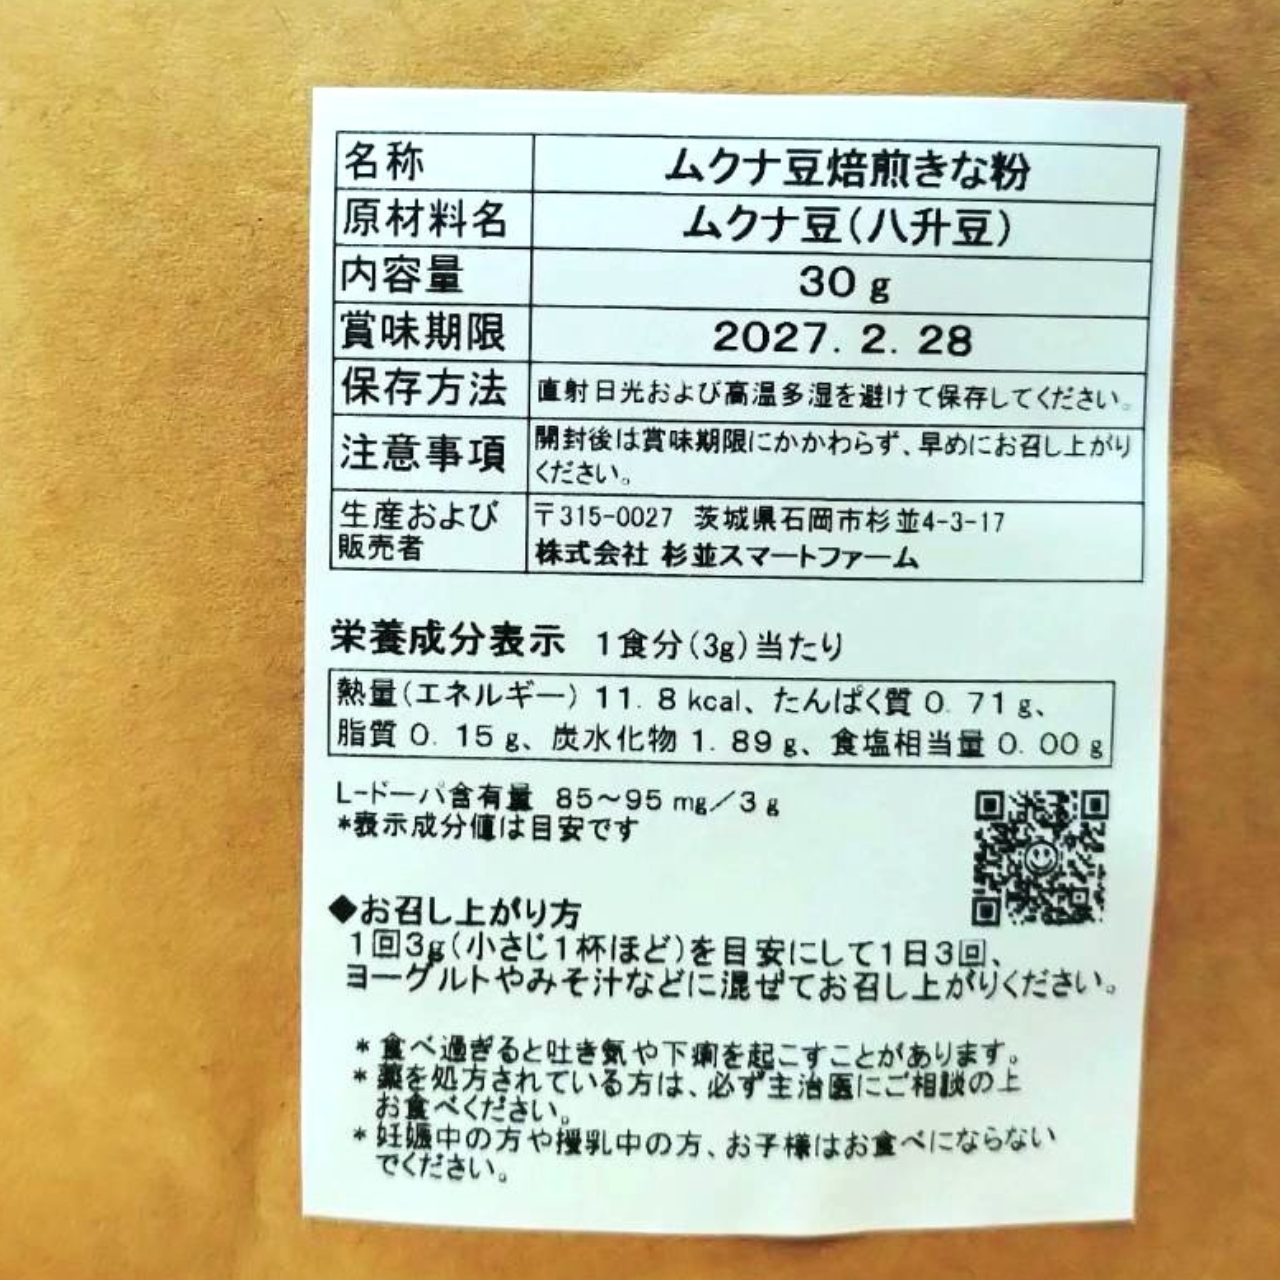 名称 ムクナ豆焙煎きな粉
原材料名 ムクナ豆(八升豆)
内容量 30 g
賞味期限 2027. 2. 28
保存方法 直射日光および高温多湿を避けて保存してください。
注意事項 開封後は賞味期限にかかわらず、早めにお召し上がり
ください。
生産および 〒315-0027 茨城県石岡市杉並4-3-17
販売者 株式会社 杉並スマートファーム
栄養成分表示 1食分(3g)当たり
熱量(エネルギー) 11. 8 kcal、たんぱく質 0. 71 g、
脂質 0. 15 g、炭水化物 1. 89 g、食塩相当量 0. 00 g
L-ドーパ含有量 85~95 mg/3 g
*表示成分値は目安です
◆お召し上がり方
1回3g(小さじ1杯ほど)を目安にして1日3回、
ヨーグルトやみそ汁などに混ぜてお召し上がりください。
* 食べ過ぎると吐き気や下痢を起こすことがあります。
* 薬を処方されている方は、必ず主治医にご相談の上
お食べください。
* 妊娠中の方や授乳中の方、お子様はお食べにならない
でください。